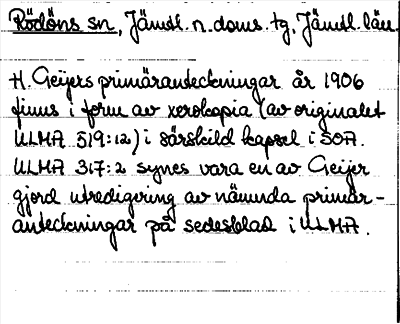 Rödöns sn, Jämtl. n. doms. tg, Jämtl. län.
H. Geijers primäranteckningar år 1906
finns i form av xerokopia (av originalet
ULMA 519:12) i särskild kapsel i SOA.
ULMA 317:2 synes vara en av Geijer
gjord utredigering av nämnda primär-
anteckningar på sedesblad i ULMA.